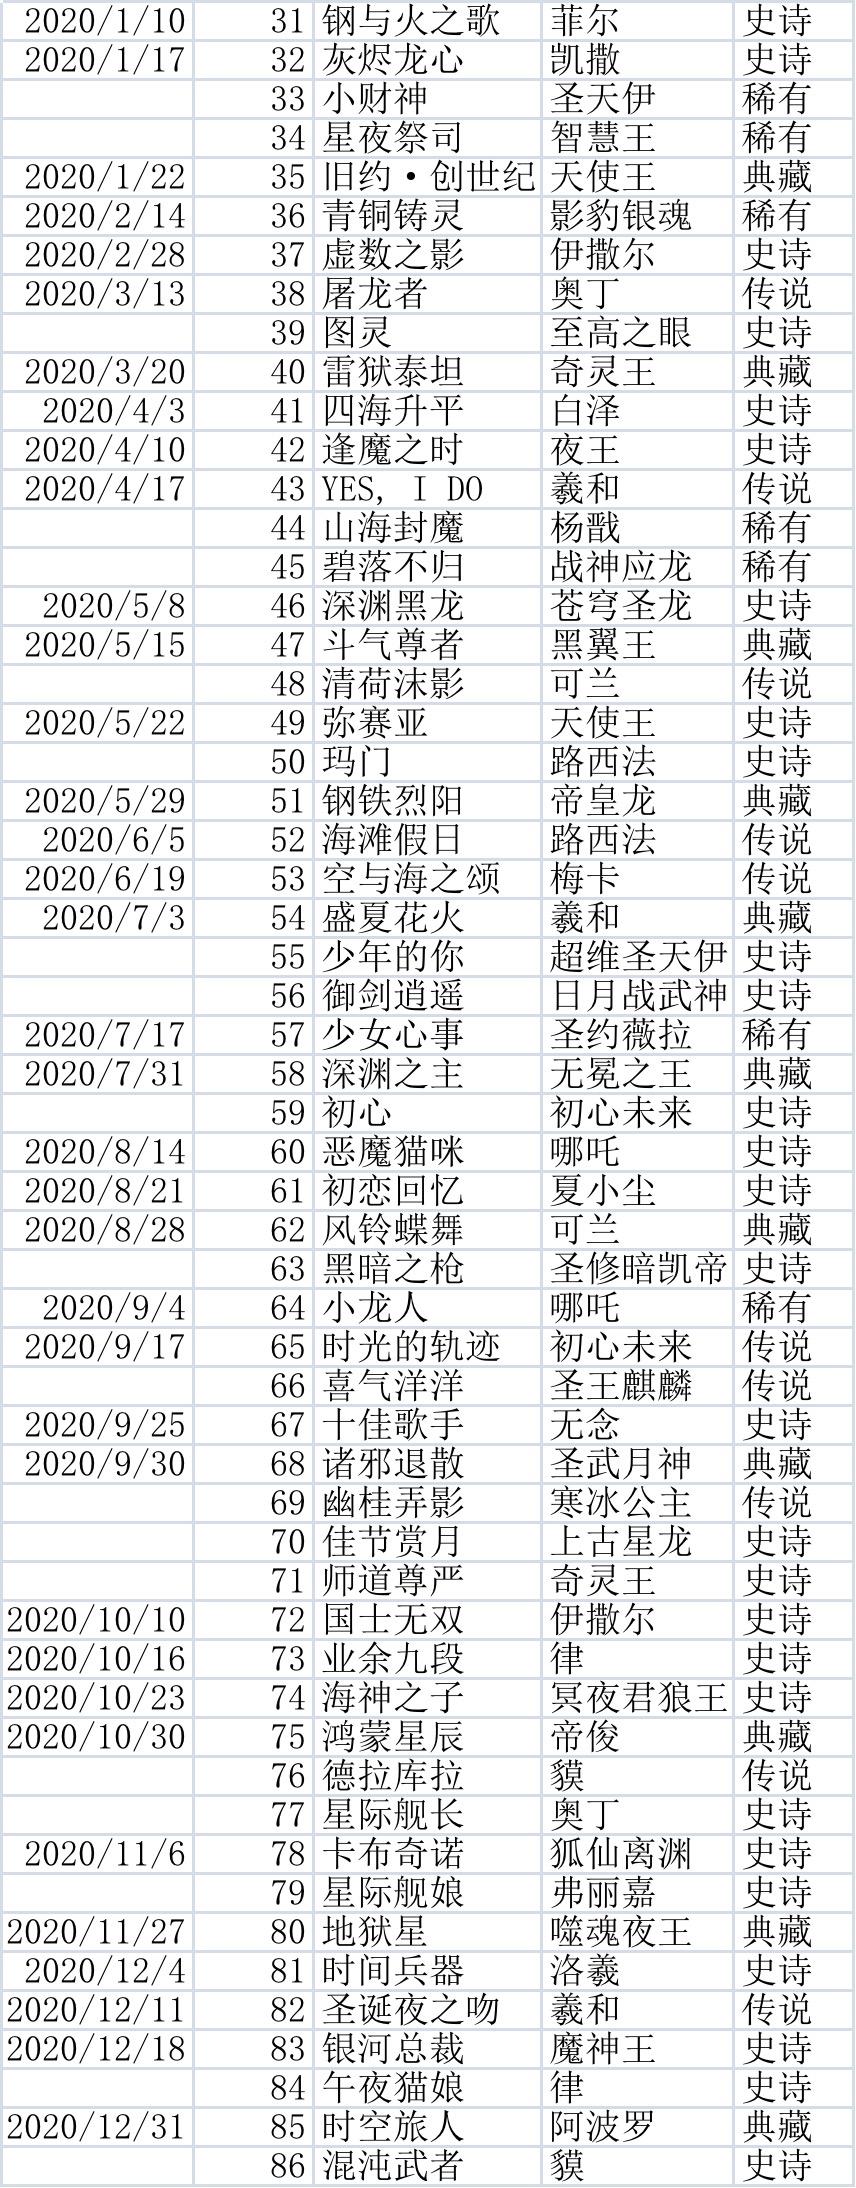 2020/1/10 31 钢与火之歌 菲尔 史诗
2020/1/17 32 灰烬龙心 凯撒 史诗
33 小财神 圣天伊 稀有
34 星夜祭司 智慧王 稀有
2020/1/22 35 旧约·创世纪 天使王 典藏
2020/2/14 36 青铜铸灵 影豹银魂 稀有
2020/2/28 37 虚数之影 伊撒尔 史诗
2020/3/13 38 屠龙者 奥丁 传说
39 图灵 至高之眼 史诗
2020/3/20 40 雷狱泰坦 奇灵王 典藏
2020/4/3 41 四海升平 白泽 史诗
2020/4/10 42 逢魔之时 夜王 史诗
2020/4/17 43 YES, I DO 羲和 传说
44 山海封魔 杨戬 稀有
45 碧落不归 战神应龙 稀有
2020/5/8 46 深渊黑龙 苍穹圣龙 史诗
2020/5/15 47 斗气尊者 黑翼王 典藏
48 清荷沫影 可兰 传说
2020/5/22 49 弥赛亚 天使王 史诗
50 玛门 路西法 史诗
2020/5/29 51 钢铁烈阳 帝皇龙 典藏
2020/6/5 52 海滩假日 路西法 传说
2020/6/19 53 空与海之颂 梅卡 传说
2020/7/3 54 盛夏花火 羲和 典藏
55 少年的你 超维圣天伊 史诗
56 御剑逍遥 日月战武神 史诗
2020/7/17 57 少女心事 圣约薇拉 稀有
2020/7/31 58 深渊之主 无冕之王 典藏
59 初心 初心未来 史诗
2020/8/14 60 恶魔猫咪 哪吒 史诗
2020/8/21 61 初恋回忆 夏小尘 史诗
2020/8/28 62 风铃蝶舞 可兰 典藏
63 黑暗之枪 圣修暗凯帝 史诗
2020/9/4 64 小龙人 哪吒 稀有
2020/9/17 65 时光的轨迹 初心未来 传说
66 喜气洋洋 圣王麒麟 传说
2020/9/25 67 十佳歌手 无念 史诗
2020/9/30 68 诸邪退散 圣武月神 典藏
69 幽桂弄影 寒冰公主 传说
70 佳节赏月 上古星龙 史诗
71 师道尊严 奇灵王 史诗
2020/10/10 72 国士无双 伊撒尔 史诗
2020/10/16 73 业余九段 律 史诗
2020/10/23 74 海神之子 冥夜君狼王 史诗
2020/10/30 75 鸿蒙星辰 帝俊 典藏
76 德拉库拉 貘 传说
77 星际舰长 奥丁 史诗
2020/11/6 78 卡布奇诺 狐仙离渊 史诗
79 星际舰娘 弗丽嘉 史诗
2020/11/27 80 地狱星 噬魂夜王 典藏
2020/12/4 81 时间兵器 洛羲 史诗
2020/12/11 82 圣诞夜之吻 羲和 传说
2020/12/18 83 银河总裁 魔神王 史诗
84 午夜猫娘 律 史诗
2020/12/31 85 时空旅人 阿波罗 典藏
86 混沌武者 貘 史诗